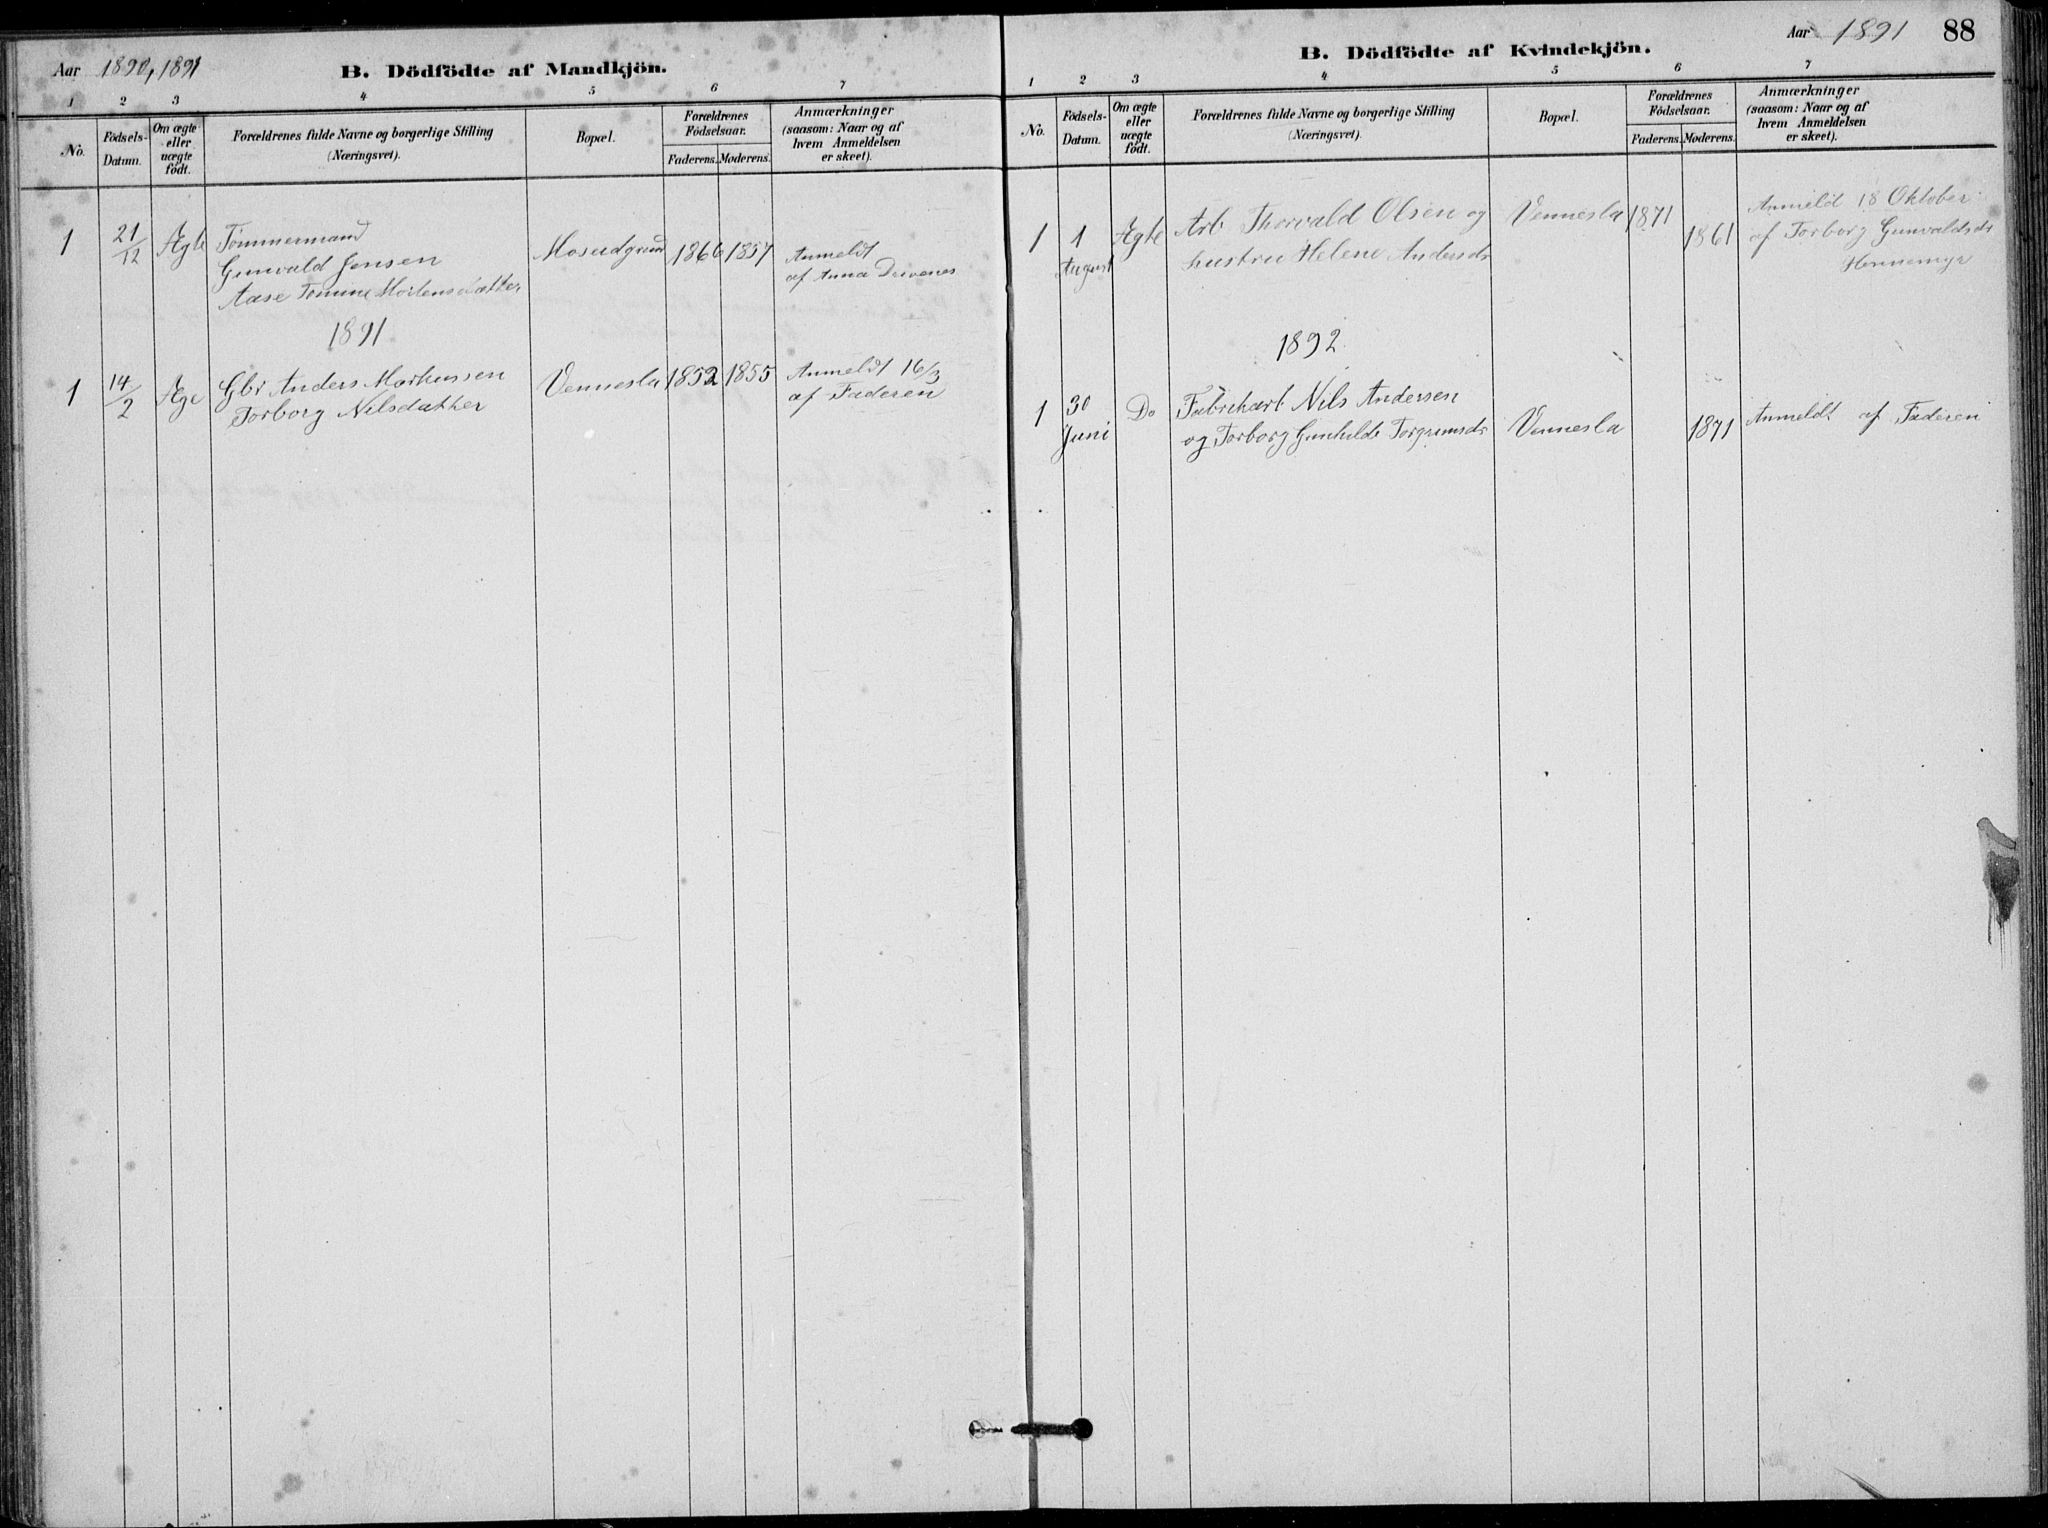 Aar 1890, 1891
B. Dödfödte af Mandkjön.
1 2 3 4 5 6 7
No.
Födsels-
Datum.
Om ægte
eller
uægte
födt.
Forældrenes fulde Navne og borgerlige Stilling
(Næringsvei).
Bopæl.
Forældrenes
Födselsaar.
Faderens. Moderens.
Anmærkninger
(saasom: Naar og af
hvem Anmeldelsen
er skeet).
1 21/12 Ægte Tømmermand
Gunvald Jensen
Aase Tomine Mortensdatter
1866 1857
Anmeldt
af Anna Drivenes
1891
1 14/2 Æge Gbr Anders Markussen
Torborg Nilsdatter
Vennesla 1852 1855
Anmeldt 16/3
af Faderen
Aar 1891 88
B. Dödfödte af Kvindekjön.
1 2 3 4 5 6 7
No.
Födsels-
Datum.
Om ægte
eller
uægte
födt.
Forældrenes fulde Navne og borgerlige Stilling
(Næringsvei).
Bopæl.
Forældrenes
Födselsaar.
Faderens. Moderens.
Anmærkninger
(saasom: Naar og af
hvem Anmeldelsen
er skeet).
1 1 August Ægte Arb Thorvald Olsen og
hustru Helene Andersdr
Vennesla 1871 1861
Anmeld 18 Oktober
af Torborg Gunvaldsdr
Hennemyr
1892
1 30 Juni Do Fabrikarb Nils Andersen
og Torborg Gunhilde Torgrimsdr
Vennesla 1871 Anmeldt af Faderen